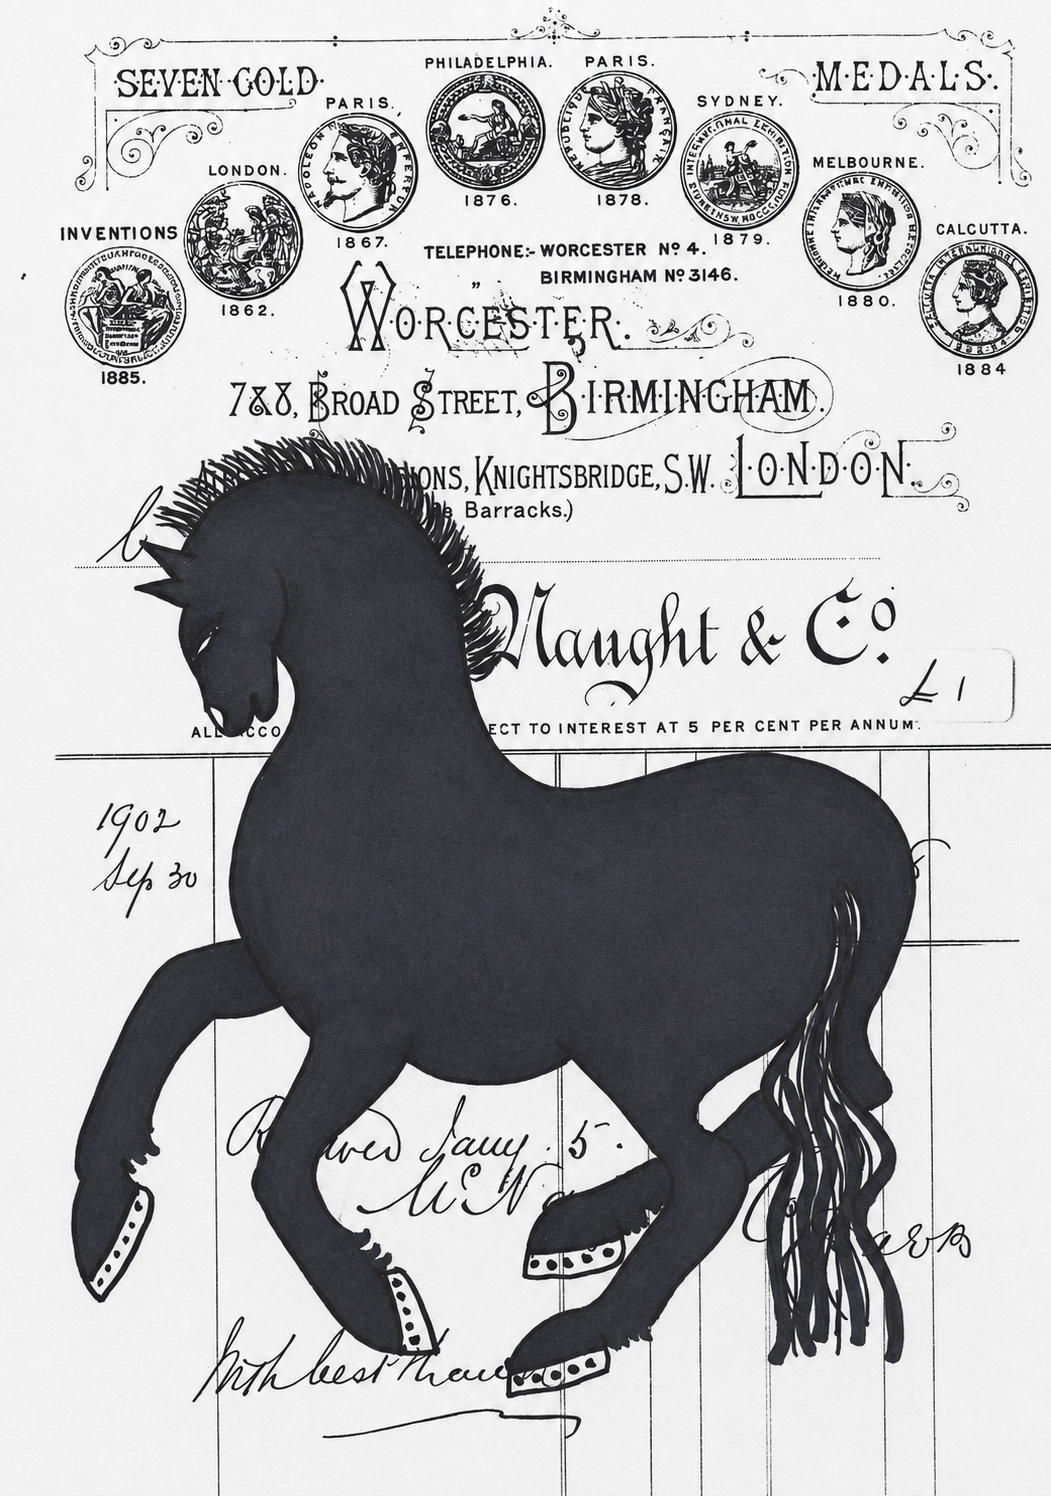 SEVEN GOLD MEDALS.
INVENTIONS
1885.
LONDON.
1862.
PARIS.
1867.
NAPOLEON III EMPEREUR
PHILADELPHIA.
1876.
PARIS.
1878.
REPUBLIQUE FRANÇAISE
SYDNEY.
1879.
MELBOURNE.
1880.
CALCUTTA.
1884
TELEPHONE:- WORCESTER Nº 4.
BIRMINGHAM Nº 3146.
WORCESTER.
7&8, BROAD STREET, BIRMINGHAM.
IONS, KNIGHTSBRIDGE, S.W. LONDON.
Barracks.)
Naught & Co.
£1
ALL ACCO ECT TO INTEREST AT 5 PER CENT PER ANNUM.
1902
Sep 30
Jany. 5.
McN
With best than